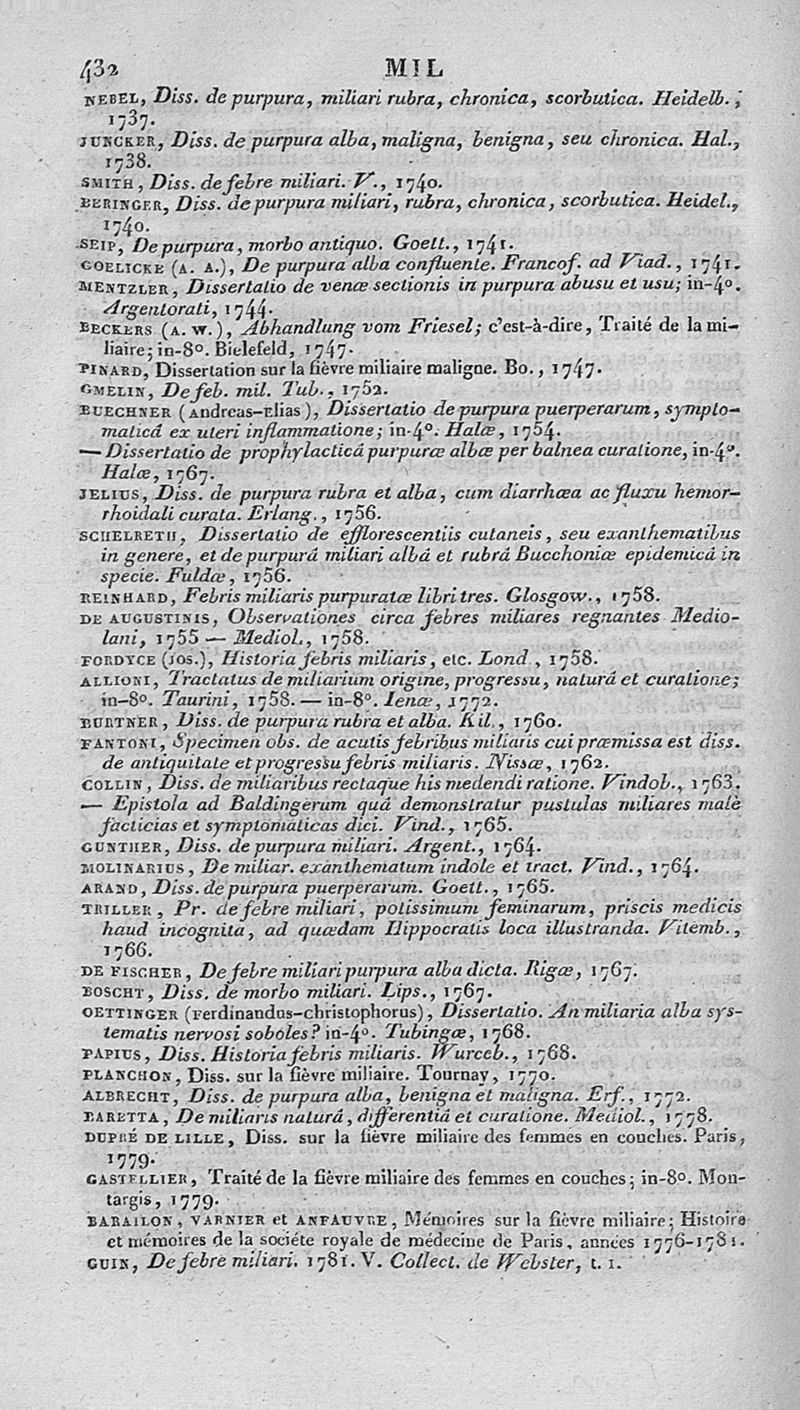 432 MIL
NEBEL, Diss. de purpura, miliari rubra, chronica, scorbutica. Heidelb.,
1737.
JUNCKER, Diss. de purpura alba, maligna, benigna, seu chronica. Hal.,
1738.
SMITH, Diss. de febre miliari. V., 1740.
BERINGER, Diss. de purpura miliari, rubra, chronica, scorbutica. Heidel.,
1740.
SEIP, De purpura, morbo antiquo. Goett., 1741.
GOELICKE (A. A.), De purpura alba confluente. Francof. ad Viad., 1741.
MENTZLER, Dissertatio de venæ sectionis in purpura abusu et usu; in-4°.
Argentorati, 1744.
BECKERS (A. W.), Abhandlung vom Friesel; c'est-à-dire, Traité de la mi-
liaire; in-8°. Bielefeld, 1747.
PINARD, Dissertation sur la fièvre miliaire maligne. Bo., 1747.
GMELIN, De feb. mil. Tub., 1752.
BUECHNER (Andreas-Elias), Dissertatio de purpura puerperarum, sympto-
maticâ ex uteri inflammatione; in-4°. Halæ, 1754.
— Dissertatio de prophylacticâ purpuræ albæ per balnea curatione, in-4°.
Halæ, 1767.
JELIUS, Diss. de purpura rubra et alba, cum diarrhœa ac fluxu hemor-
rhoidali curata. Erlang., 1756.
SCHELRETH, Dissertatio de efflorescentiis cutaneis, seu exanthematibus
in genere, et de purpurâ miliari albâ et rubrâ Bucchoniæ epidemicâ in
specie. Fuldæ, 1756.
REINHARD, Febris miliaris purpuratæ libri tres. Glosgow., 1758.
DE AUGUSTINIS, Observationes circa febres miliares regnantes Medio-
lani, 1755 — Mediol., 1758.
FORDYCE (JOS.), Historia febris miliaris, etc. Lond., 1758.
ALLIONI, Tractatus de miliarium origine, progressu, naturâ et curatione;
in-8°. Taurini, 1758. — in-8°. Ienæ, 1772.
BURTNER, Diss. de purpura rubra et alba. Kil., 1760.
FANTONI, Specimen obs. de acutis febribus miliaris cui præmissa est diss.
de antiquitate et progressu febris miliaris. Nissæ, 1762.
COLLIN, Diss. de miliaribus rectaque his medendi ratione. Vindob., 1763.
— Epistola ad Baldingerum quâ demonstratur pustulas miliares malè
facticias et symptomaticas dici. Vind., 1765.
GUNTHER, Diss. de purpura miliari. Argent., 1764.
MOLINARIUS, De miliar. exanthematum indole et tract. Vind., 1764.
ARAND, Diss. de purpura puerperarum. Goett., 1765.
TRILLER, Pr. de febre miliari, potissimum feminarum, priscis medicis
haud incognita, ad quædam Hippocratis loca illustranda. Vitemb.,
1766.
DE FISCHER, De febre miliari purpura alba dicta. Rigæ, 1767.
BOSCHT, Diss. de morbo miliari. Lips., 1767.
OETTINGER (Ferdinandus-christophorus), Dissertatio. An miliaria alba sys-
tematis nervosi soboles? in-4°. Tubingæ, 1768.
PAPIUS, Diss. Historia febris miliaris. Wurceb., 1768.
PLANCHON, Diss. sur la fièvre miliaire. Tournay, 1770.
ALBRECHT, Diss. de purpura alba, benigna et maligna. Erf., 1772.
BARETTA, De miliaris naturâ, differentiâ et curatione. Mediol., 1778.
DUPRÉ DE LILLE, Diss. sur la fièvre miliaire des femmes en couches. Paris,
1779.
GASTELLIER, Traité de la fièvre miliaire des femmes en couches; in-8°. Mon-
targis, 1779.
BARAILON, VARNIER et ANFAUVRE, Mémoires sur la fièvre miliaire; Histoire
et mémoires de la société royale de médecine de Paris, années 1776-1781.
GUIN, De febre miliari. 1781. V. Collect. de Webster, t. 1.